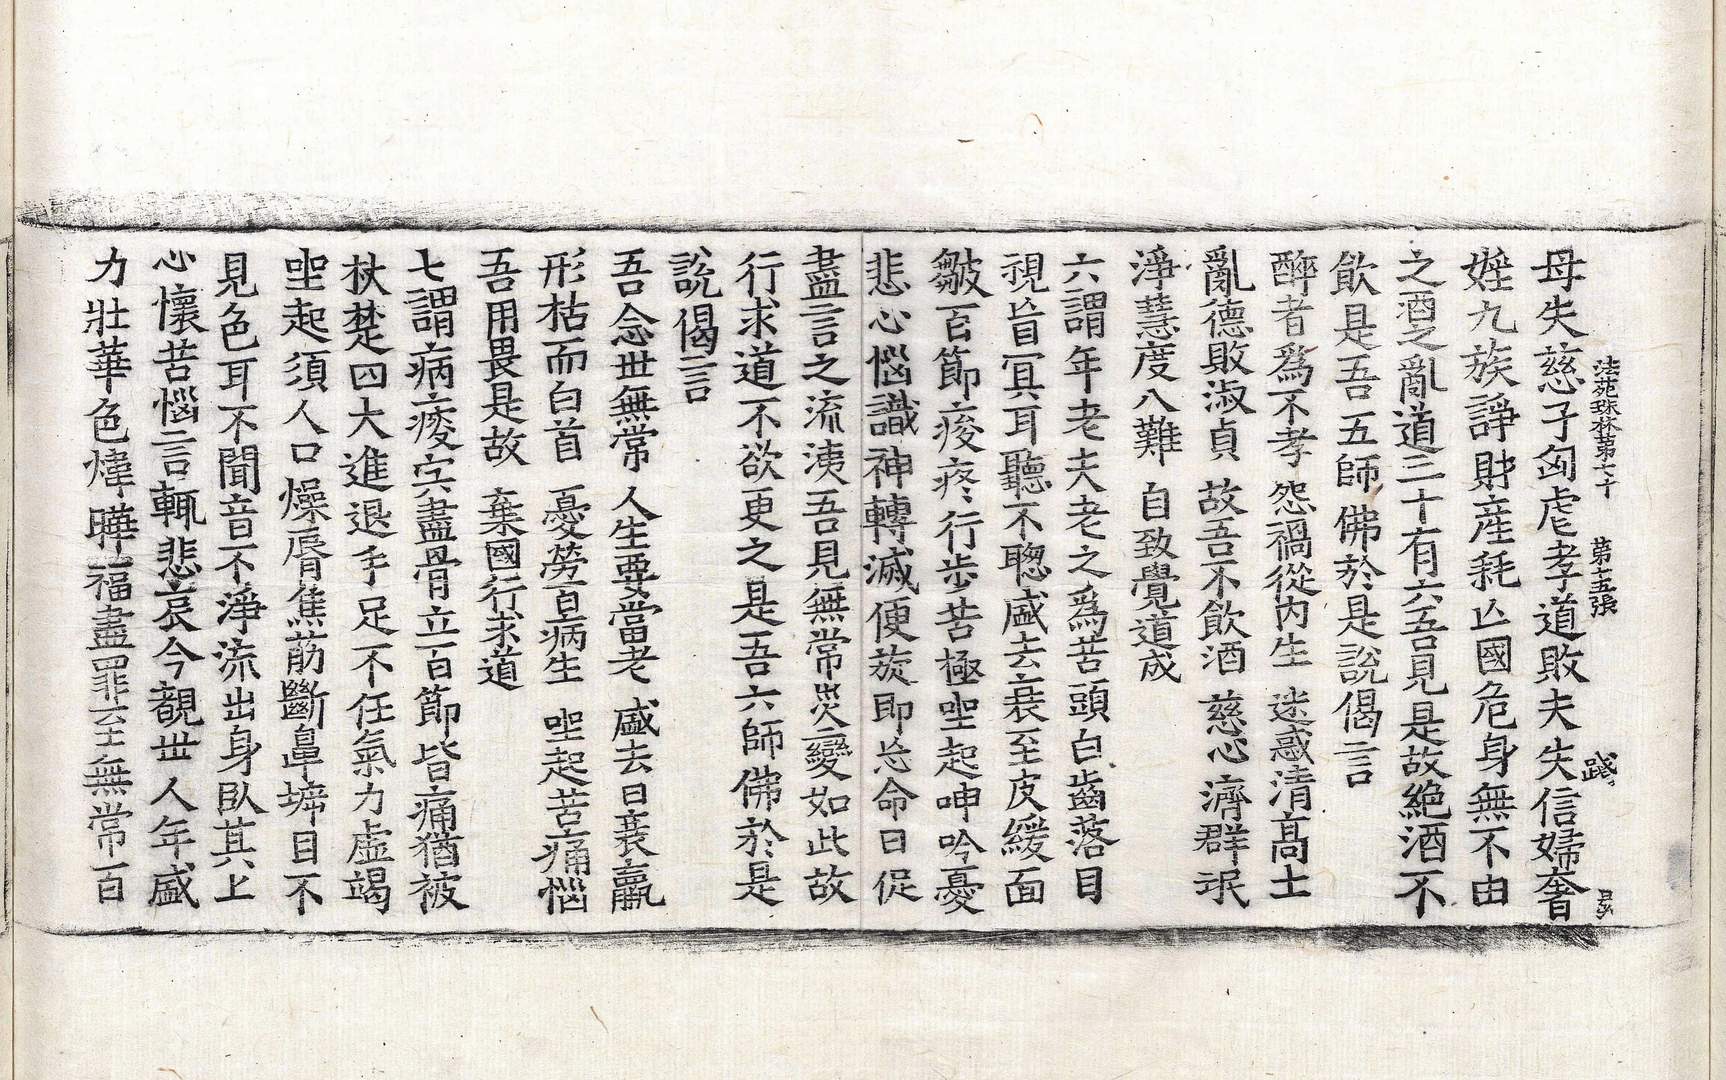 法苑珠林第七十　第十五張　踐
母失慈子匈虐孝道敗夫失信婦奢
婬九族諍財産耗亾國危身無不由
之酒之亂道三十有六吾見是故絶酒不
飲是吾五師佛於是說偈言
醉者爲不孝　怨禍從內生　迷惑清高士
亂德敗淑貞　故吾不飲酒　慈心濟群氓
淨慧度八難　自致覺道成
六謂年老夫老之爲苦頭白齒落目
視𥇀冥耳聽不聰盛去衰至皮緩面
皺百節痠疼行步苦極坐起呻吟憂
悲心惱識神轉滅便旋即忘命日促
盡言之流洟吾見無常災變如此故
行求道不欲更之是吾六師佛於是
說偈言
吾念世無常　人生要當老　盛去日衰羸
形枯而白首　憂勞百病生　坐起苦痛惱
吾用畏是故　棄國行求道
七謂病瘦宍盡骨立百節皆痛猶被
杖楚四大進退手足不任氣力虛竭
坐起須人口燥脣焦筋斷鼻㙛目不
見色耳不聞音不淨流出身臥其上
心懷苦惱言輒悲哀今覩世人年盛
力壯華色煒曄福盡罪至無常百